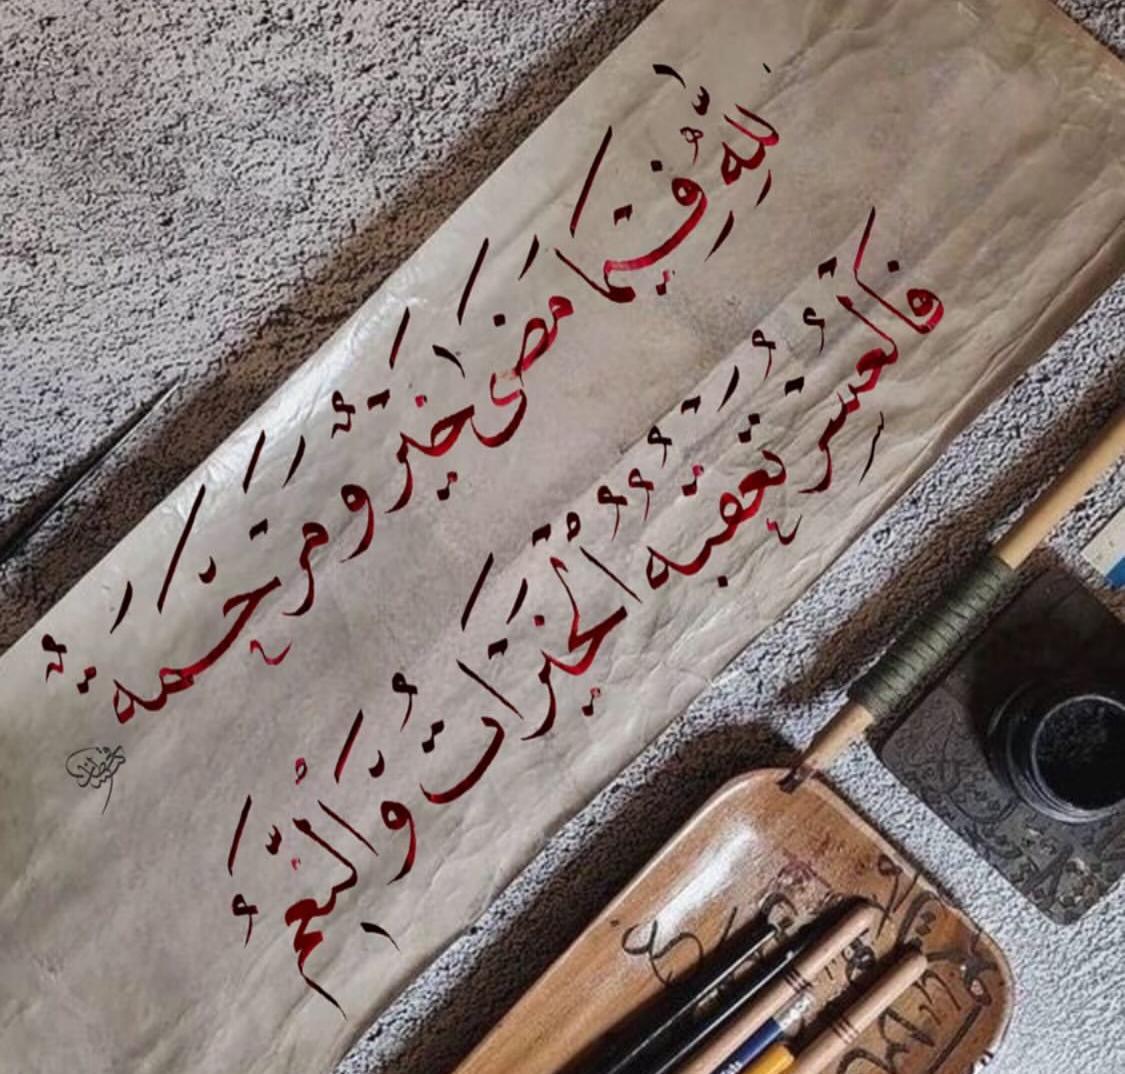 لِلّٰهِ فِيمَا مَضَى خَيْرٌ وَمَرْحَمَةٌ
فَالْعُسْرُ تَعْقُبُهُ الْخَيْرَاتُ وَالنِّعَمُ